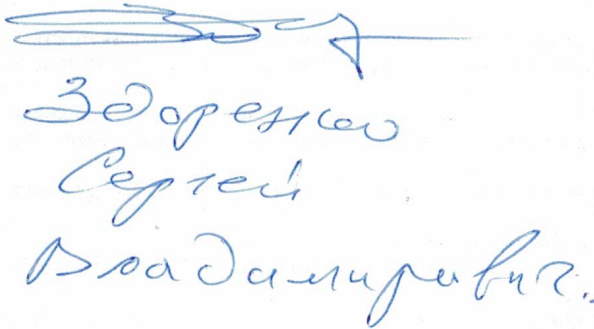 Здоренко
Сергей
Владимирович.